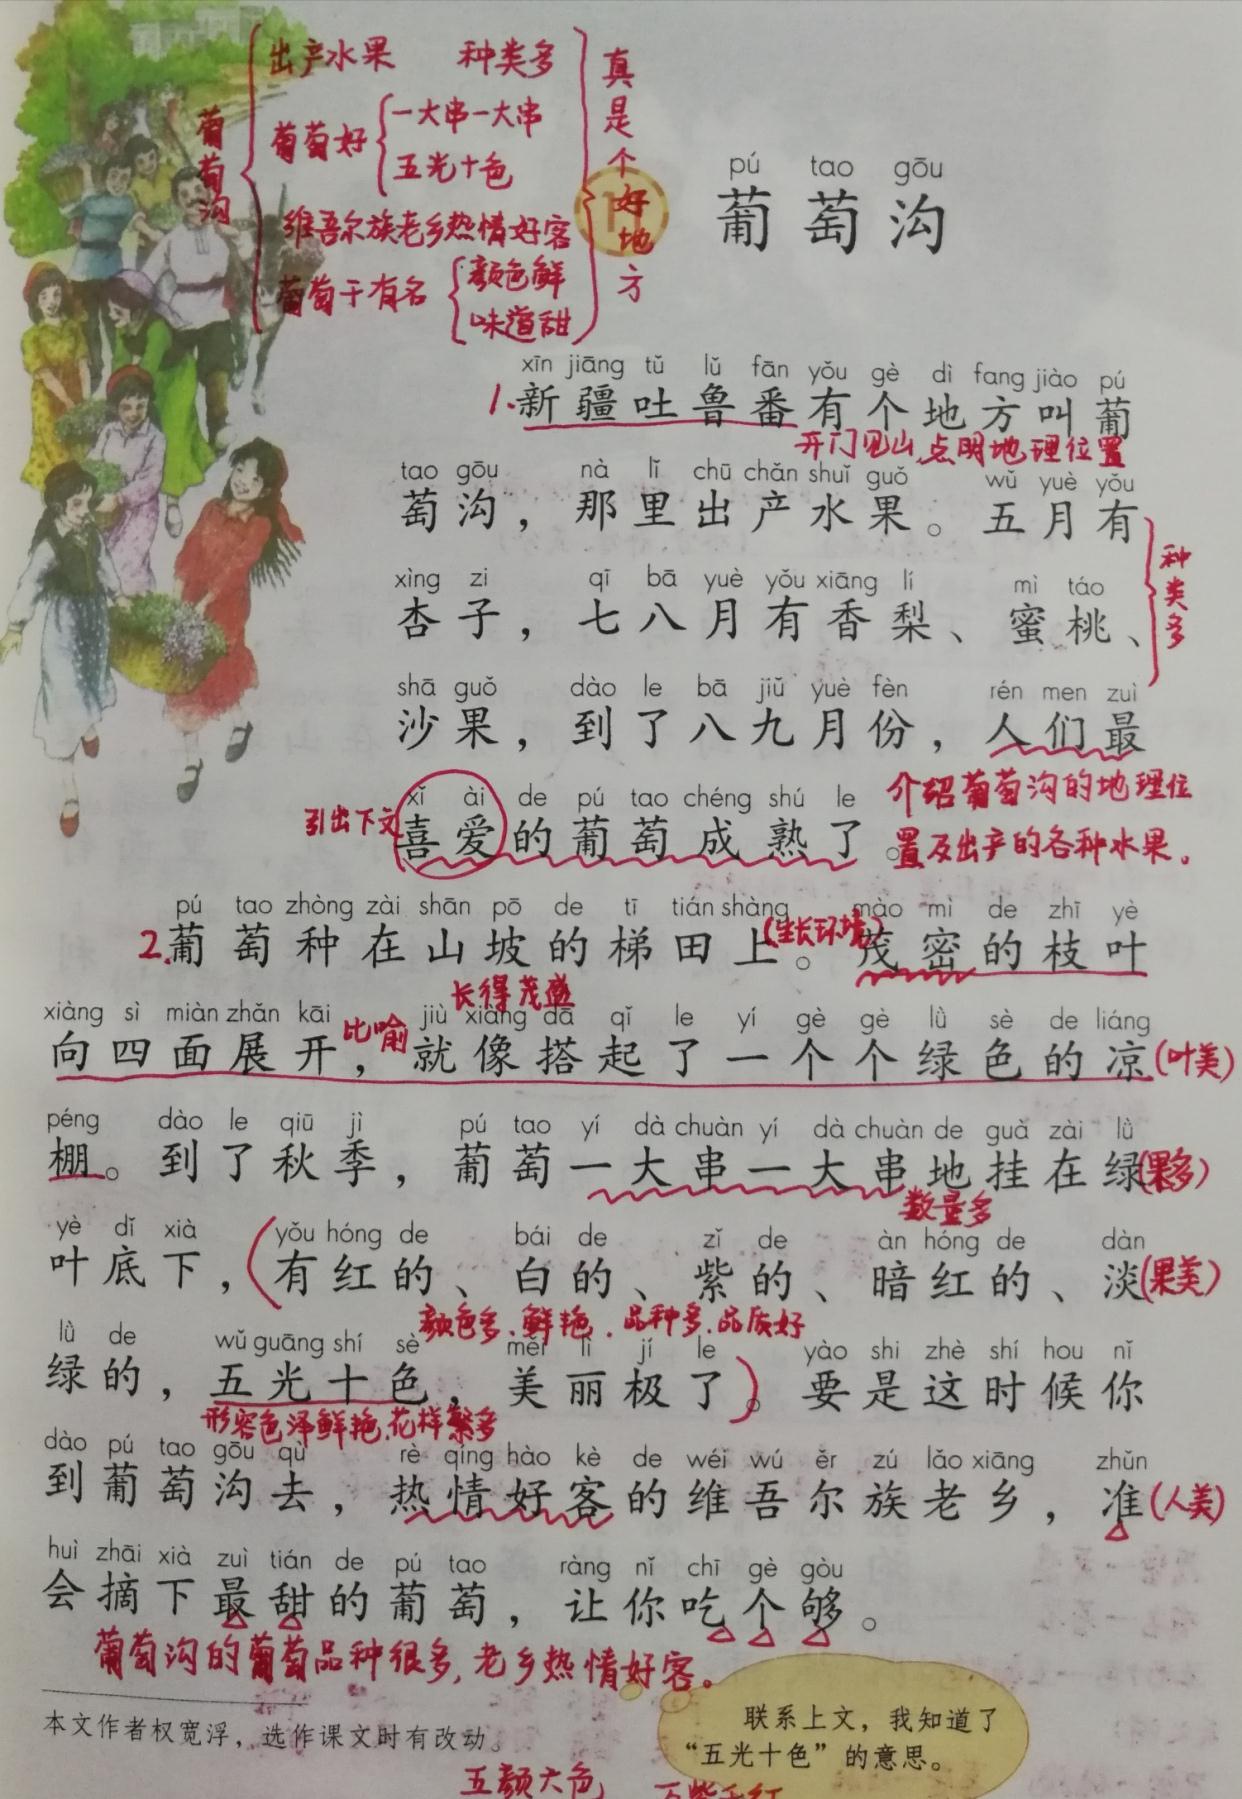 葡萄沟
出产水果 种类多
葡萄好
一大串一大串
五光十色
维吾尔族老乡热情好客
葡萄干有名
颜色鲜
味道甜
真是个好地方
11
pú tao gōu
葡萄沟
xīn jiāng tǔ lǔ fān yǒu gè dì fang jiào pú
1.新疆吐鲁番有个地方叫葡
开门见山,点明地理位置
tao gōu nà lǐ chū chǎn shuǐ guǒ wǔ yuè yǒu
萄沟，那里出产水果。五月有
xìng zi qī bā yuè yǒu xiāng lí mì táo
杏子，七八月有香梨、蜜桃、
种类多
shā guǒ dào le bā jiǔ yuè fèn rén men zuì
沙果，到了八九月份，人们最
xǐ ài de pú tao chéng shú le
引出下文
喜爱的葡萄成熟了。
介绍葡萄沟的地理位
置及出产的各种水果。
pú tao zhòng zài shān pō de tī tián shàng mào mì de zhī yè
2.葡萄种在山坡的梯田上。茂密的枝叶
(生长环境)
长得茂盛
xiàng sì miàn zhǎn kāi jiù xiàng dā qǐ le yí gè gè lǜ sè de liáng
比喻
向四面展开，就像搭起了一个个绿色的凉
(叶美)
péng dào le qiū jì pú tao yí dà chuàn yí dà chuàn de guà zài lǜ
棚。到了秋季，葡萄一大串一大串地挂在绿
(果多)
数量多
yè dǐ xià yǒu hóng de bái de zǐ de àn hóng de dàn
叶底下，有红的、白的、紫的、暗红的、淡
(果美)
颜色多、鲜艳、品种多、品质好
lǜ de wǔ guāng shí sè měi lì jí le yào shi zhè shí hou nǐ
绿的，五光十色，美丽极了。要是这时候你
形容色泽鲜艳,花样繁多
dào pú tao gōu qù rè qíng hào kè de wéi wú ěr zú lǎo xiāng zhǔn
到葡萄沟去，热情好客的维吾尔族老乡，准
(人美)
huì zhāi xià zuì tián de pú tao ràng nǐ chī gè gòu
会摘下最甜的葡萄，让你吃个够。
葡萄沟的葡萄品种很多,老乡热情好客。
本文作者权宽浮，选作课文时有改动。
联系上文，我知道了
“五光十色”的意思。
五颜六色